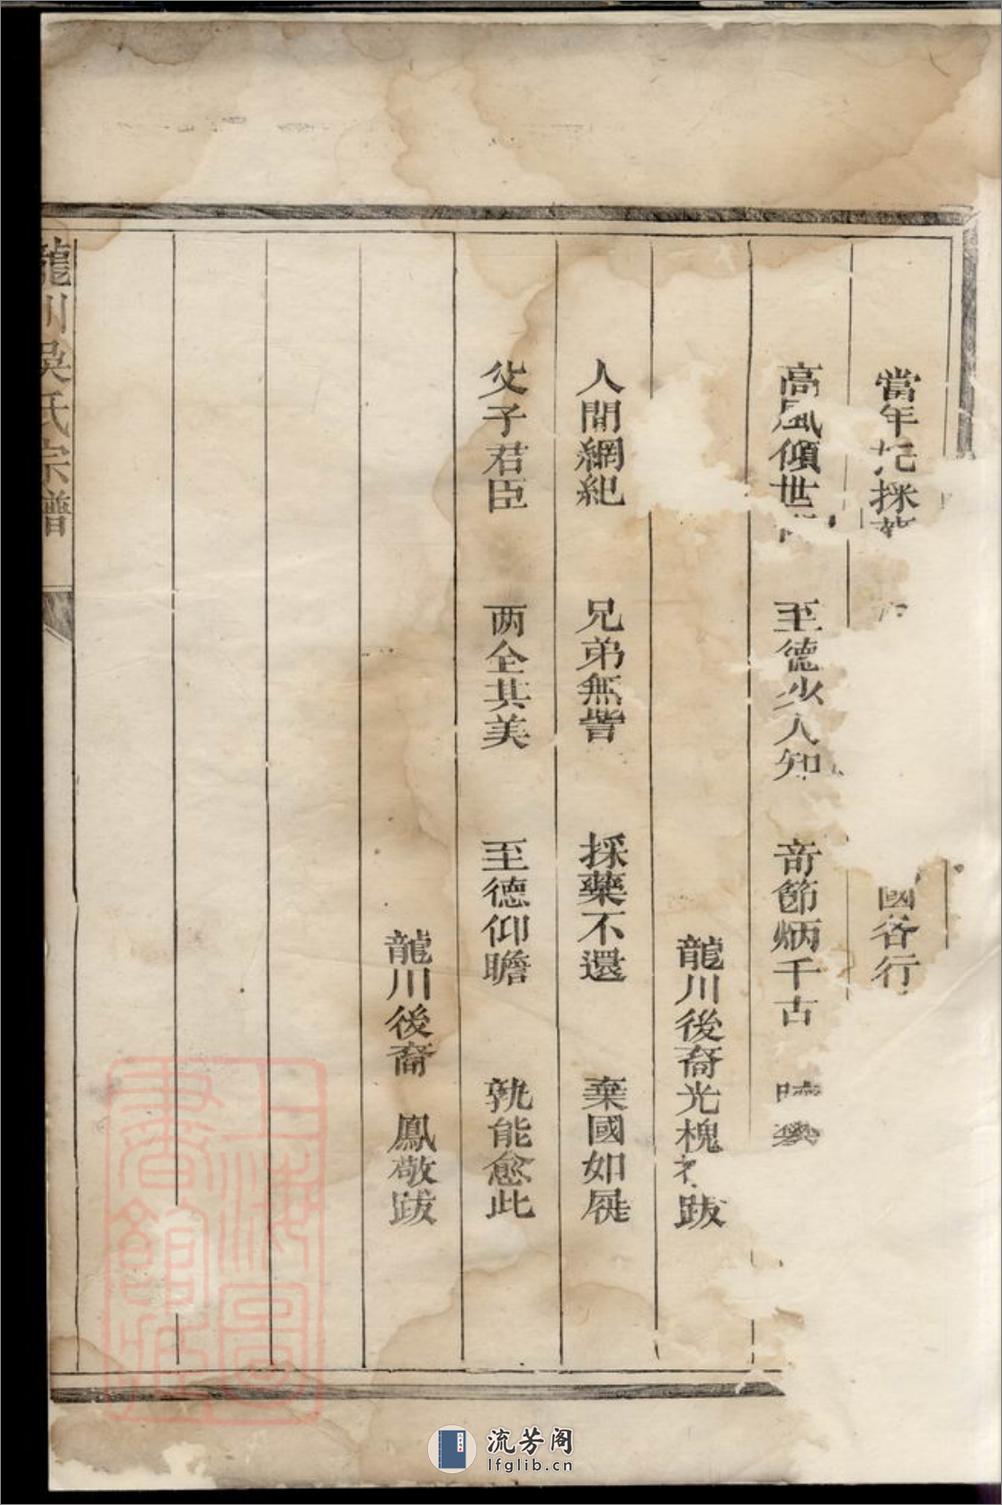 當年 採 國各行
高風傾世 至德少人知 奇節炳千古
龍川後裔光槐 跋
人間網紀 兄弟無訾 採藥不還 棄國如屣
父子君臣 两全其美 至德仰瞻 孰能愈此
龍川後裔 鳳敬跋
龍川吳氏宗譜
上海圖書館藏
流芳阁
lfglib.cn